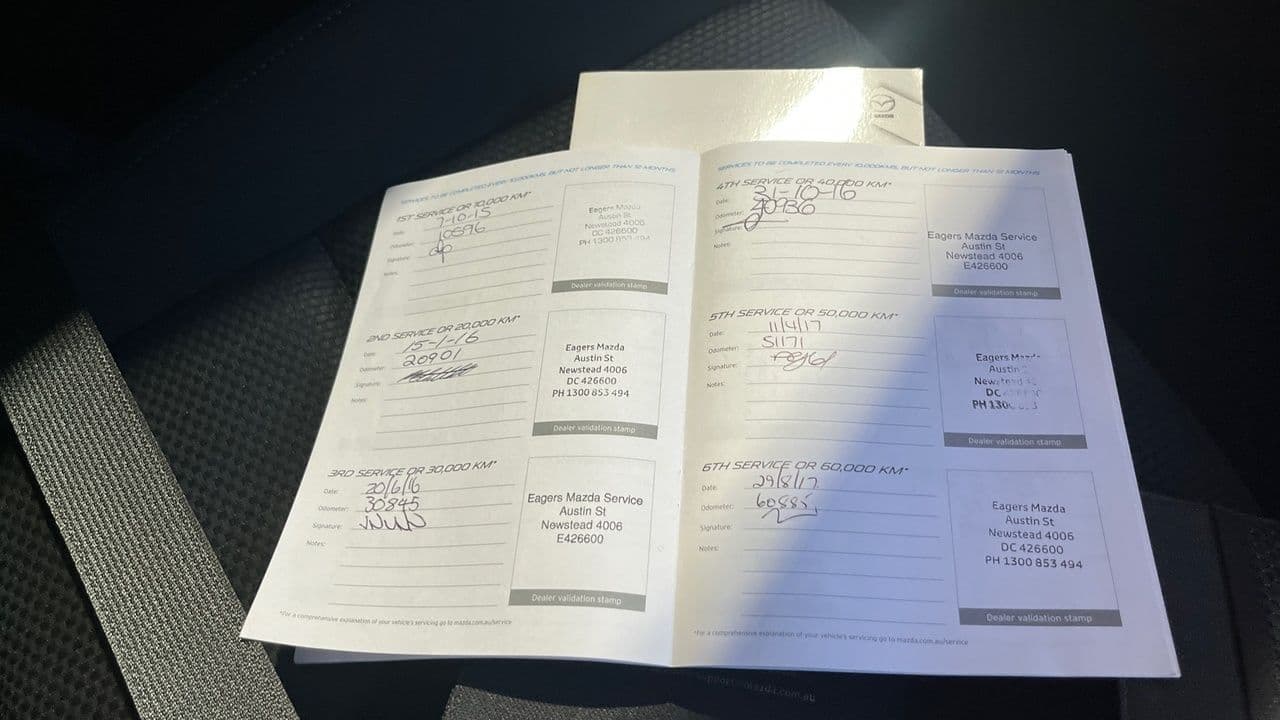 SERVICES TO BE COMPLETED EVERY 10,000KMS, BUT NOT LONGER THAN 12 MONTHS
1ST SERVICE OR 10,000 KM*
Date: 7-10-15
Odometer: 10596
Signature:
Notes:
Eagers Mazda
Austin St
Newstead 4006
DC 426600
PH 1300 853 494
Dealer validation stamp
2ND SERVICE OR 20,000 KM*
Date: 15-1-16
Odometer: 20901
Signature:
Notes:
Eagers Mazda
Austin St
Newstead 4006
DC 426600
PH 1300 853 494
Dealer validation stamp
3RD SERVICE OR 30,000 KM*
Date: 20/6/16
Odometer: 30845
Signature:
Notes:
Eagers Mazda Service
Austin St
Newstead 4006
E426600
Dealer validation stamp
*For a comprehensive explanation of your vehicle's servicing go to mazda.com.au/service
mazda
SERVICES TO BE COMPLETED EVERY 10,000KMS, BUT NOT LONGER THAN 12 MONTHS
4TH SERVICE OR 40,000 KM*
Date: 31-10-16
Odometer: 40936
Signature:
Notes:
Eagers Mazda Service
Austin St
Newstead 4006
E426600
Dealer validation stamp
5TH SERVICE OR 50,000 KM*
Date: 11/4/17
Odometer: 51171
Signature:
Notes:
Eagers
Austin
DC
Dealer validation stamp
6TH SERVICE OR 60,000 KM*
Date: 29/8/17
Odometer: 60885
Signature:
Notes:
Eagers Mazda
Austin St
Newstead 4006
DC 426600
PH 1300 853 494
Dealer validation stamp
*For a comprehensive explanation of your vehicle's servicing go to mazda.com.au/service
support@mazda.com.au